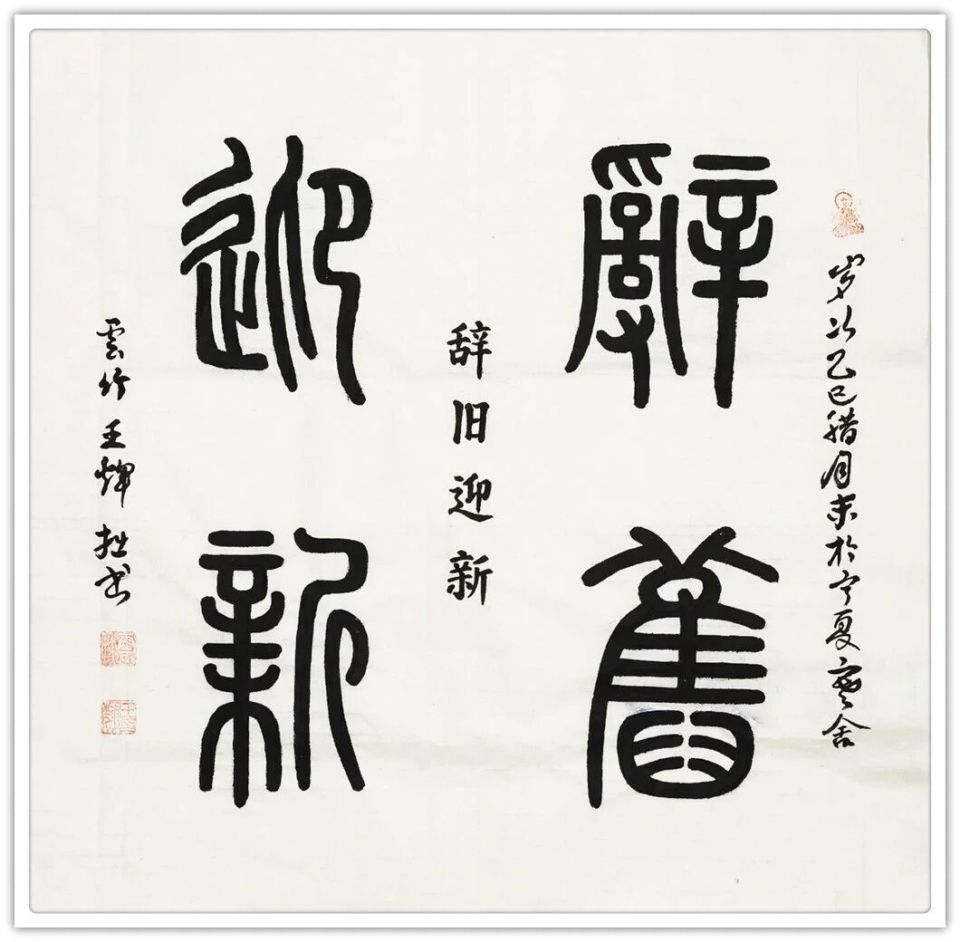 岁次乙巳腊月末於宁夏寒舍
辭舊
辞旧迎新
迎新
雲竹王煇拙书